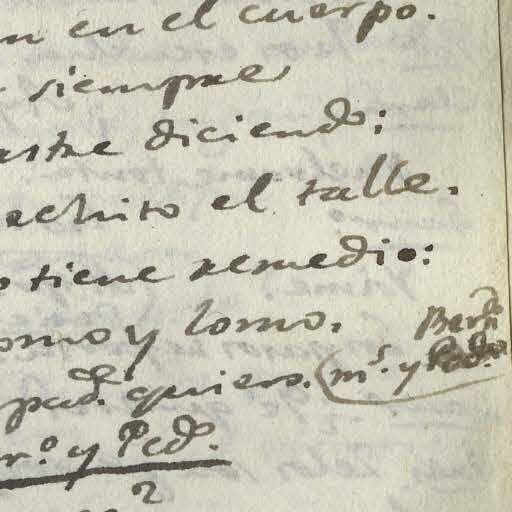 n en el cuerpo.
siempre
astre diciendo;
echito el talle.
o tiene remedio:
omo y lomo.
pad.e quiero. (m.s y
r.o y Ped.o